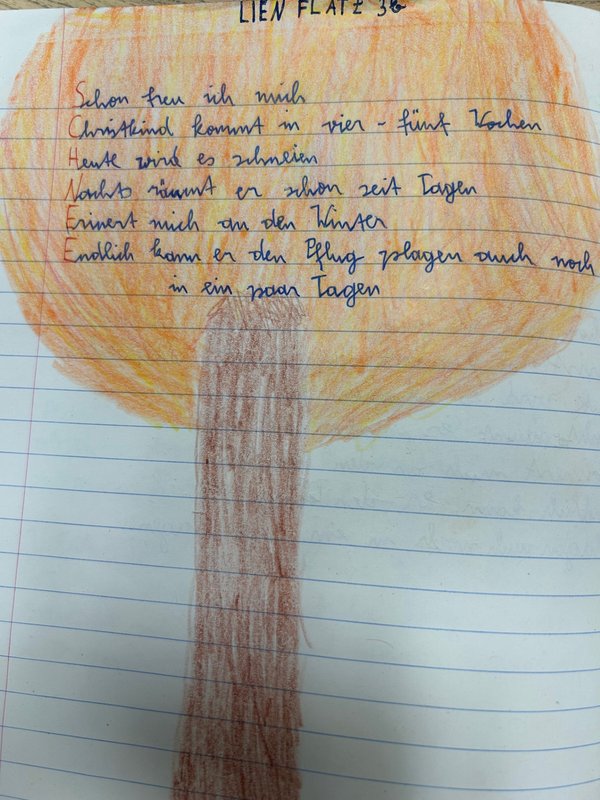 LIEN FLATZ 3b
Schon freu ich mich
Christkind kommt in vier - fünf Wochen
Heute wird es schneien
Nachts räumt er schon seit Tagen
Erinert mich an den Winter
Endlich kann er den Pflug plagen auch noch
in ein paar Tagen